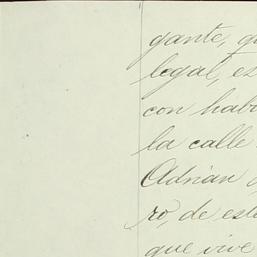 gante, q
legal, es
con habi
la calle
Adrian
ro, de est
que vive